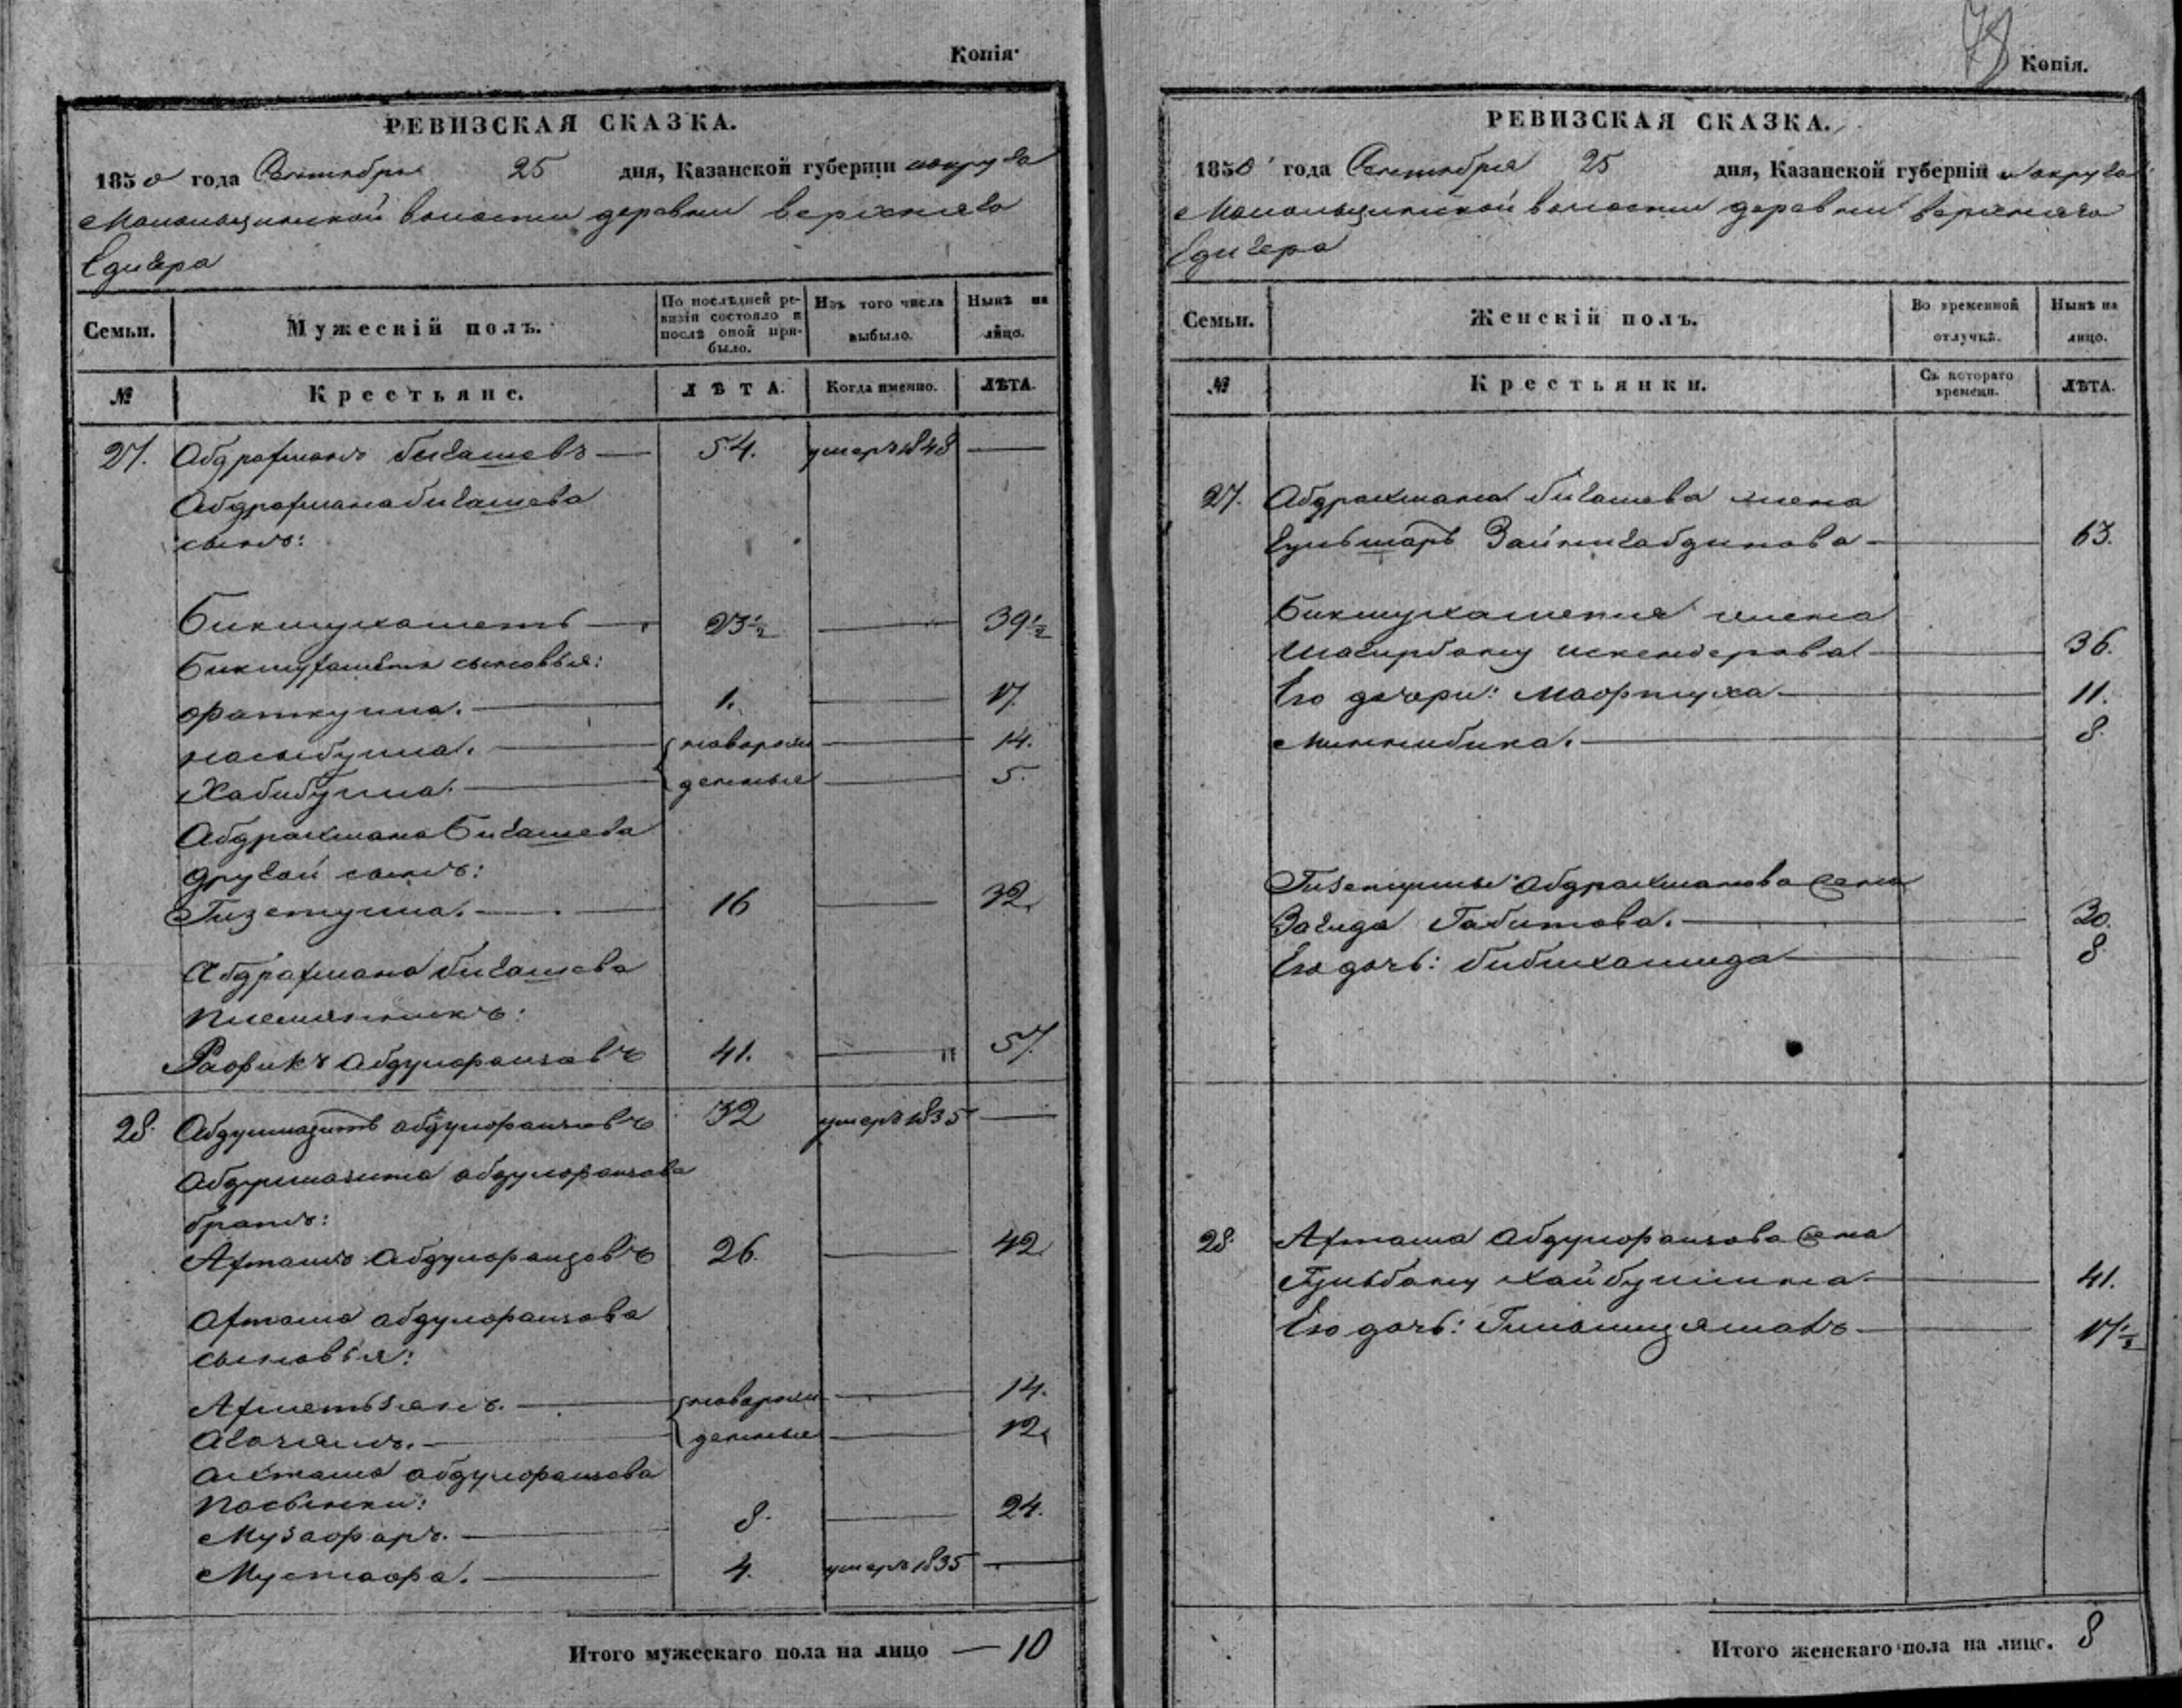 Копія.
РЕВИЗСКАЯ СКАЗКА.
1850 года Сентября 25 дня, Казанской губерніи и округа
волости деревни верхняго
Едигера
Семьи.
Мужескій полъ.
По послѣдней ре-
визіи состояло и
послѣ оной при-
было.
Изъ того числа
выбыло.
Нынѣ на
лицо.
№
Крестьяне.
ЛѢТА.
Когда именно.
ЛѢТА.
27. Абдрахманъ Бигашевъ 54. умеръ 1848
Абдрахмана Бигашева
сынъ:
Бикмухаметъ 23 1/2 39 1/2
Бикмухаметя сыновья:
Фаткулла. 1. 17.
Насыбулла. новорож 14.
Хабибулла. денные 5.
Абдрахмана Бигашева
другой сынъ:
Гизетулла. 16 32.
Абдрахмана Бигашева
племянникъ:
Рафикъ Абдулфаизовъ 41. 57.
28. Абдулмазитъ абдулфаизовъ 32 умеръ 1835
Абдулмазита абдулфаизова
братъ:
Ахташъ Абдулфаизовъ 26. 42.
Ахташа абдулфаизова
сыновья:
Ахметьзянъ. новорож 14.
денные 12.
Ахташа абдулфаизова
пасынки:
Музафаръ. 8. 24.
Мустафа. 4. умеръ 1835
Итого мужескаго пола на лицо — 10
Копія.
РЕВИЗСКАЯ СКАЗКА.
1850 года Сентября 25 дня, Казанской губерніи и округа
волости деревни верхняго
Едигера
Семьи.
Женскій полъ.
Во временной
отлучкѣ.
Нынѣ на
лицо.
№
Крестьянки.
Съ котораго
времени.
ЛѢТА.
27. Абдрахмана Бигашева жена
Зайнигабдинова 63.
Бикмухаметя жена
Шагирбану искендерова 36.
Его дочери: Мафтуха 11.
Миннибика. 8.
Гизетуллы Абдрахманова жена
Загида Габитова. 30.
Его дочь: Бибихамида 8.
28. Ахташа Абдулфаизова жена
Гульбану Хайбуллина 41.
Его дочь: 17 1/2
Итого женскаго пола на лицо. 8